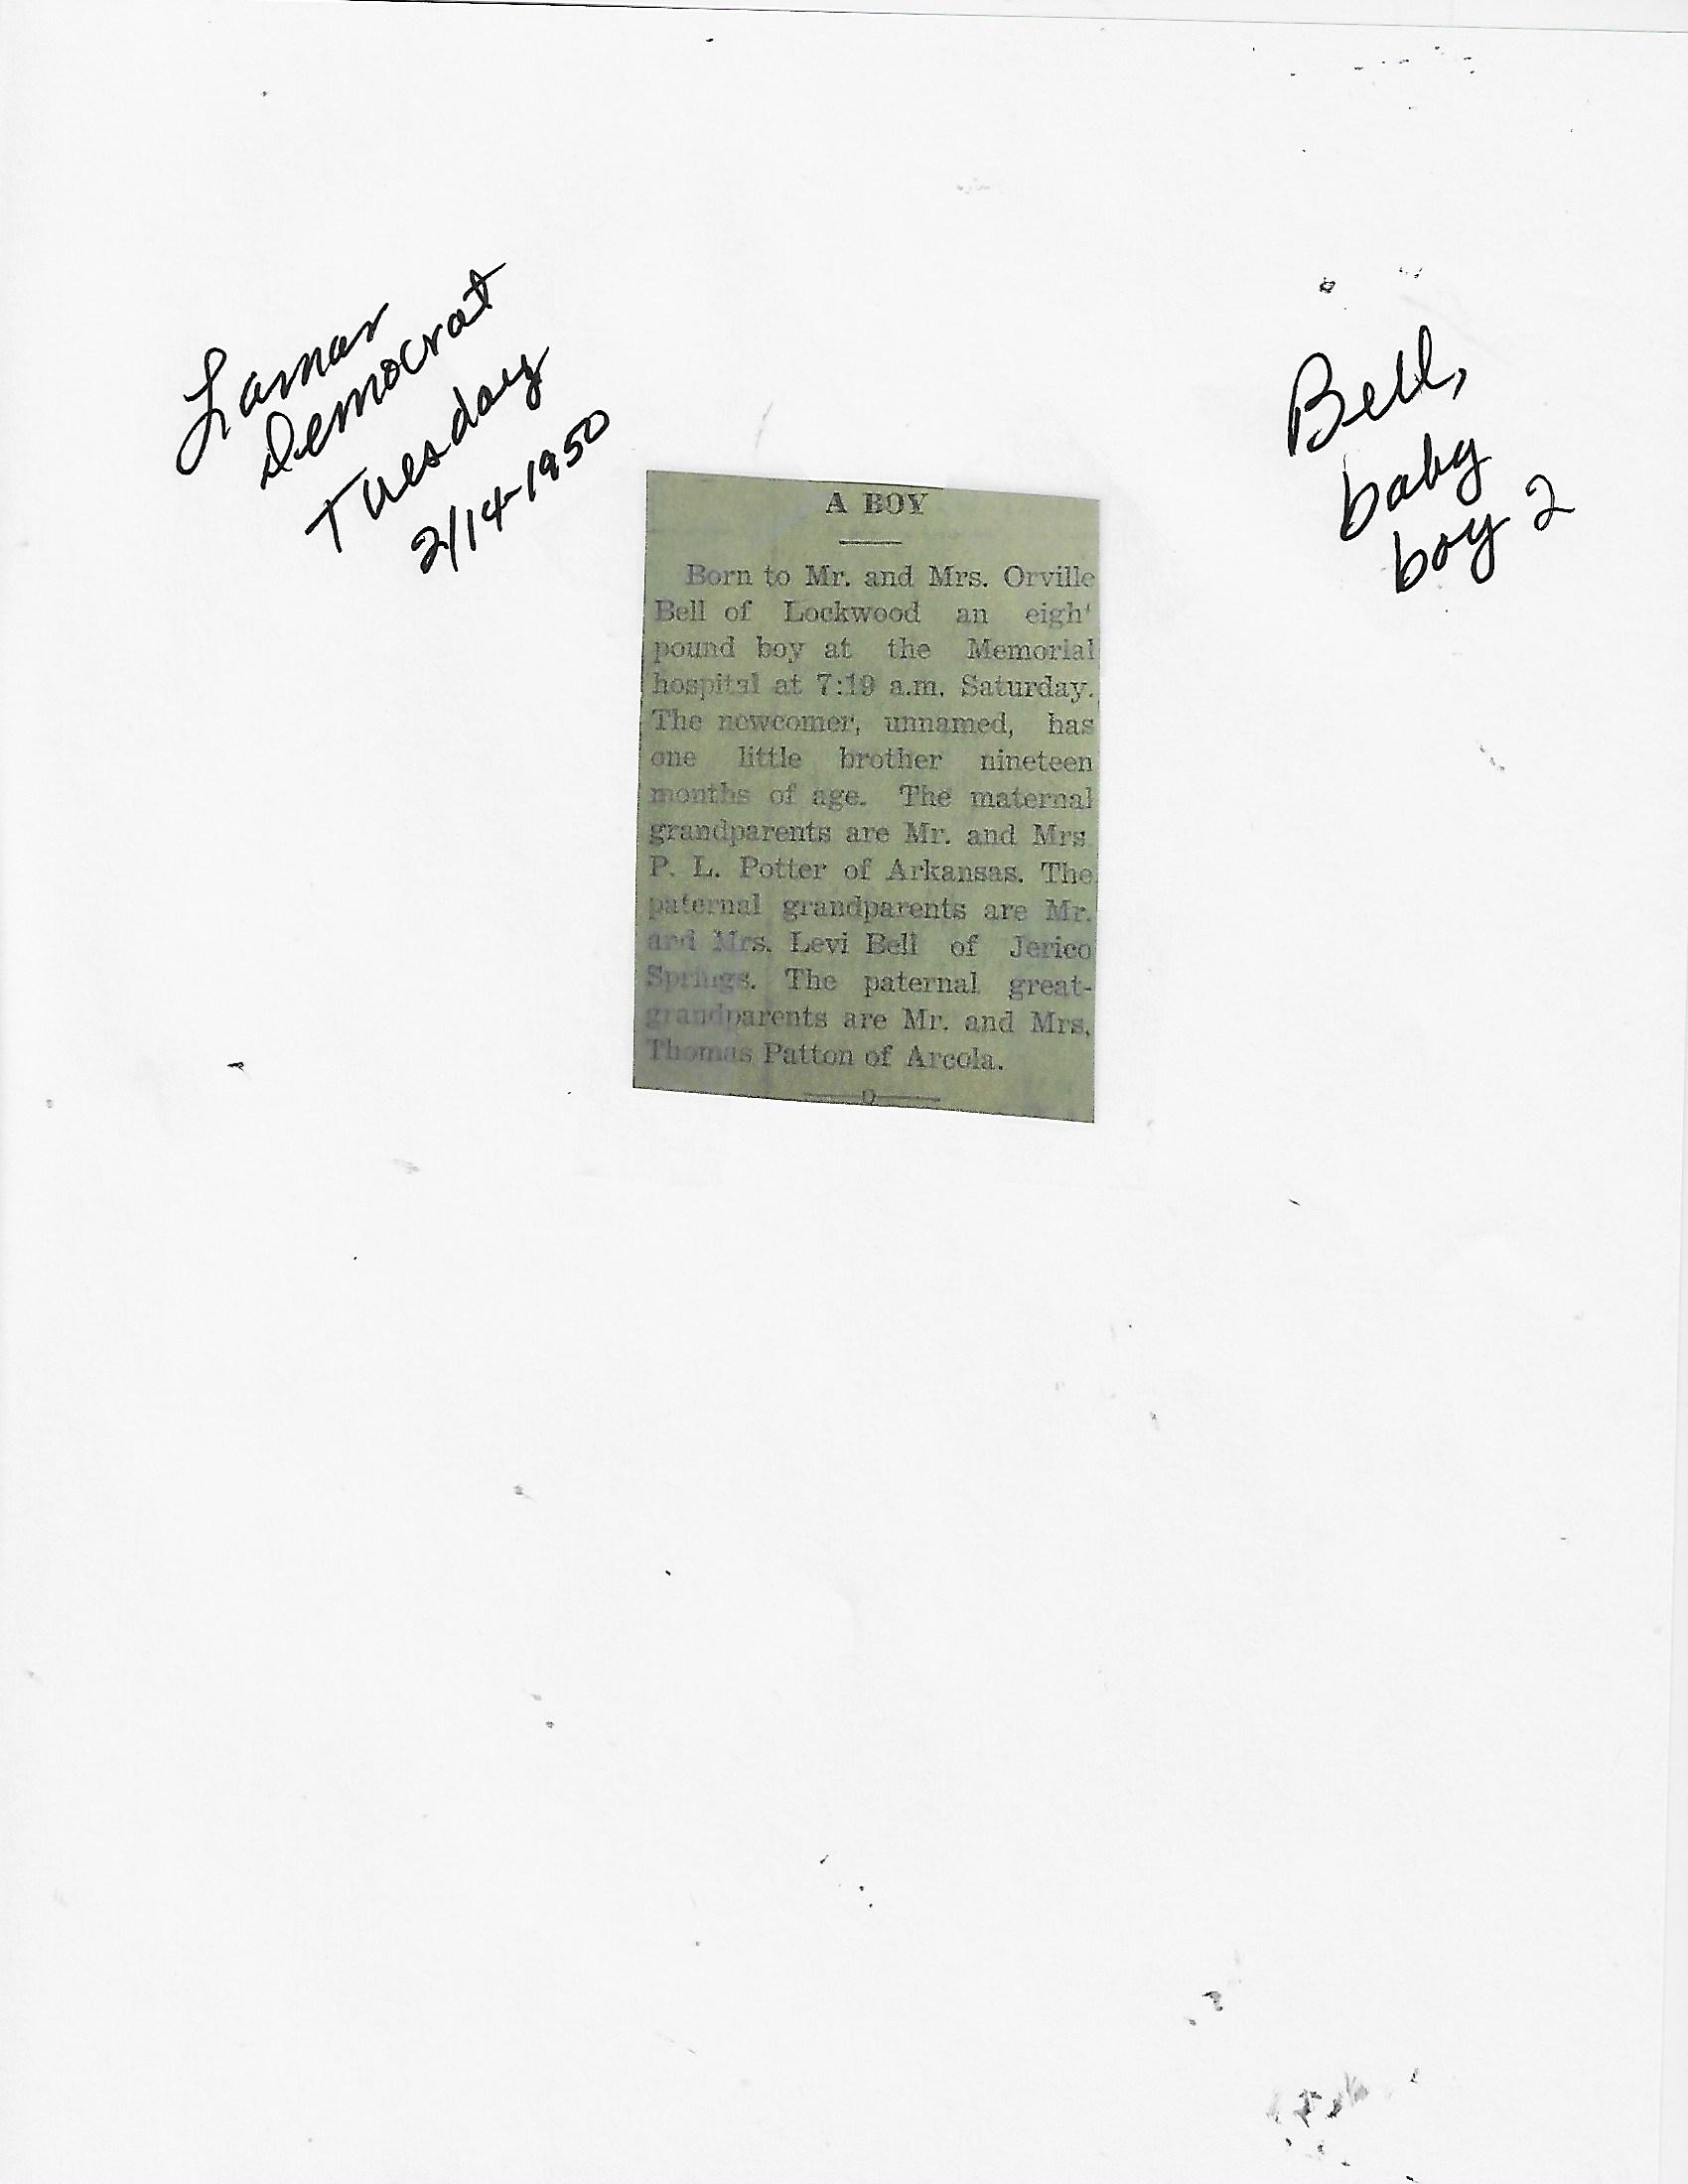 Lamar
Democrat
Tuesday
2/14-1950
Bell,
baby
boy 2
A BOY
Born to Mr. and Mrs. Orville
Bell of Lockwood an eigh'
pound boy at the Memorial
hospital at 7:19 a.m. Saturday.
The newcomer, unnamed, has
one little brother nineteen
months of age. The maternal
grandparents are Mr. and Mrs
P. L. Potter of Arkansas. The
paternal grandparents are Mr.
and Mrs. Levi Bell of Jerico
Springs. The paternal great-
grandparents are Mr. and Mrs.
Thomas Patton of Arcola.